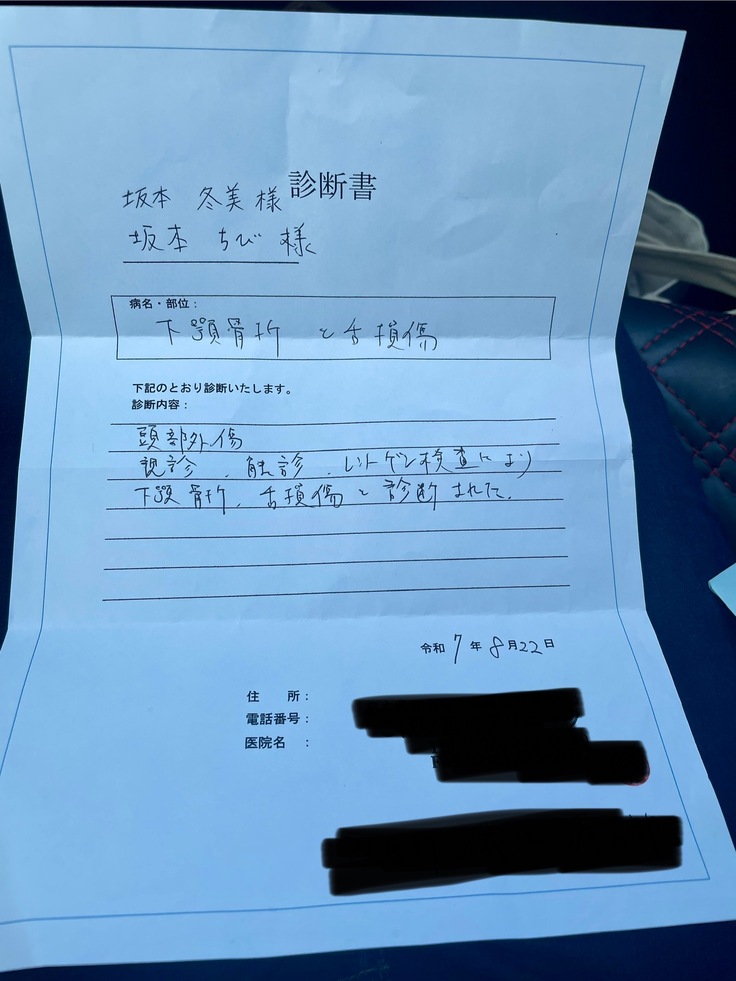 診断書
坂本 冬美様
坂本 ちび 様
病名・部位：
下顎骨折 と舌損傷
下記のとおり診断いたします。
診断内容：
頭部外傷
視診、触診、レントゲン検査により
下顎骨折、舌損傷と診断された。
令和7年8月22日
住　所：
電話番号：
医院名　：